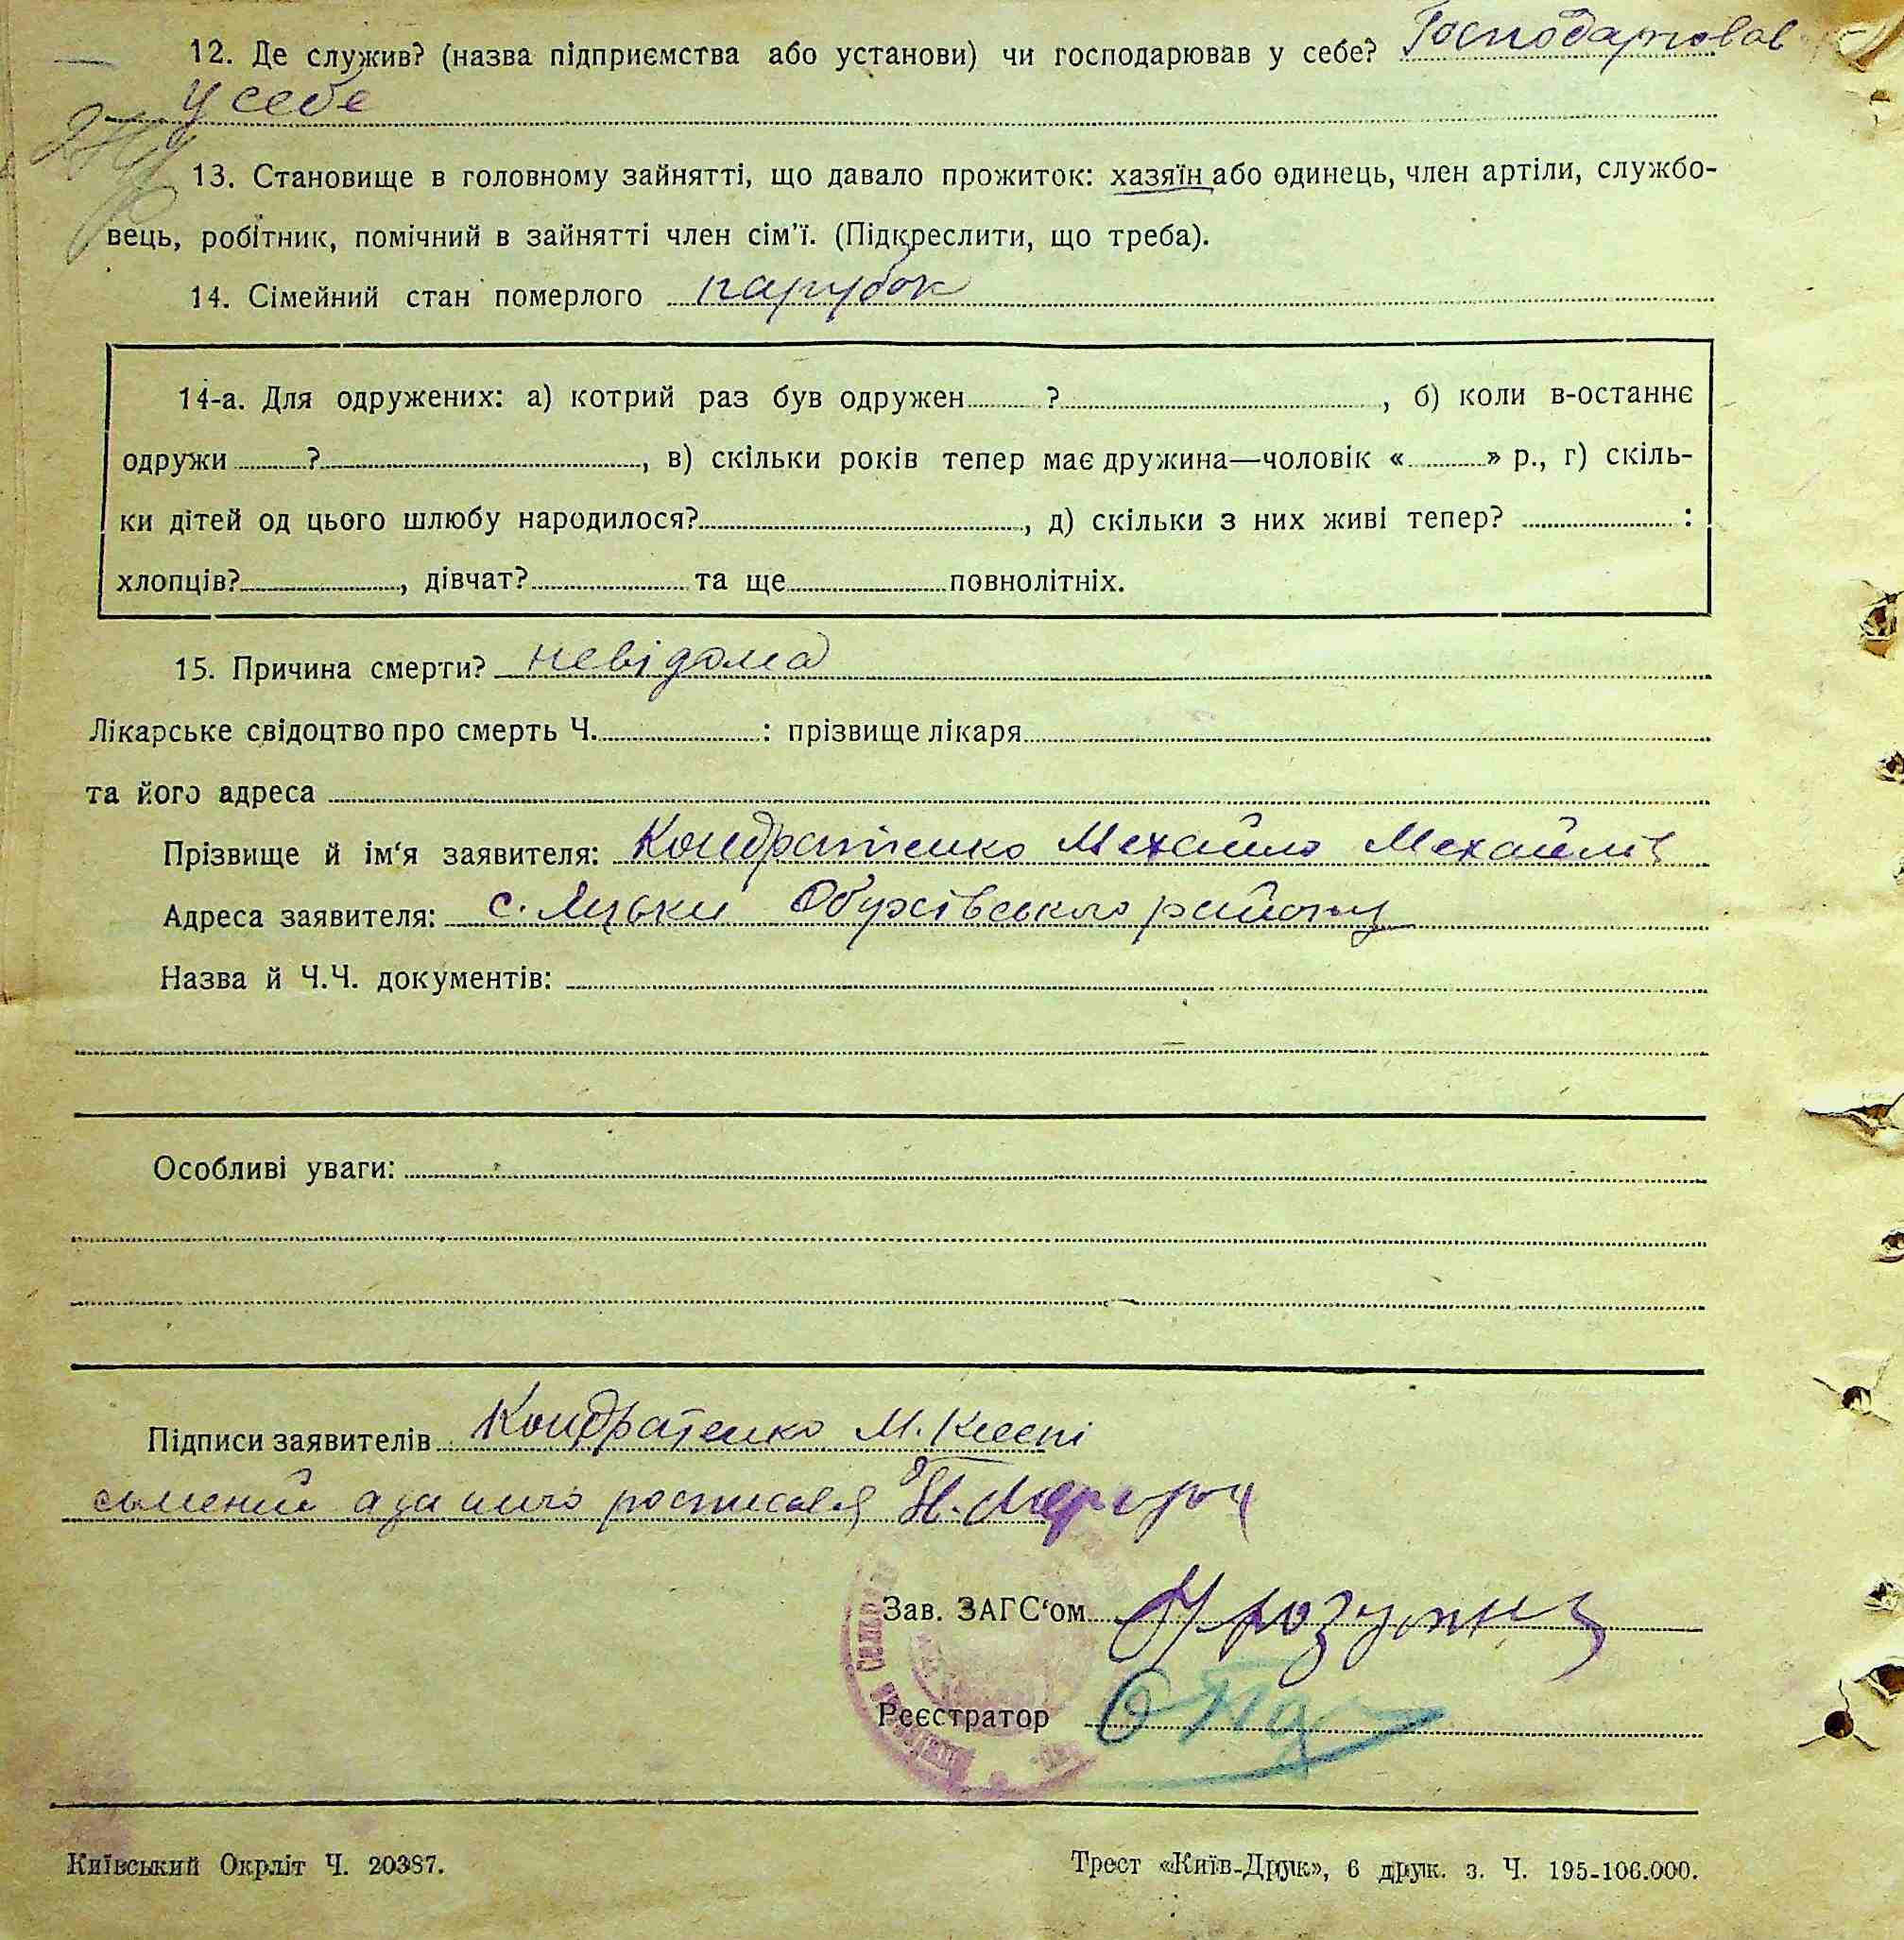 12. Де служив? (назва підприємства або установи) чи господарював у себе? Господарював
у себе
13. Становище в головному зайнятті, що давало прожиток: хазяїн або одинець, член артіли, службо-
вець, робітник, помічний в зайнятті член сім'ї. (Підкреслити, що треба).
14. Сімейний стан померлого парубок
14-а. Для одружених: а) котрий раз був одружен ? , б) коли в-останнє
одружи ? , в) скільки років тепер має дружина—чоловік « » р., г) скіль-
ки дітей од цього шлюбу народилося? , д) скільки з них живі тепер? :
хлопців? , дівчат? та ще повнолітніх.
15. Причина смерти? невідома
Лікарське свідоцтво про смерть Ч. : прізвище лікаря
та його адреса
Прізвище й ім'я заявителя: Кондратенко Михайло Михайлів
Адреса заявителя: с. Луьки Обухівського району
Назва й Ч.Ч. документів:
Особливі уваги:
Підписи заявителів Кондратенко М.
росписався
Зав. ЗАГС'ом
Реєстратор
Київський Окрліт Ч. 20387.
Трест «Київ-Друк», 6 друк. з. Ч. 195-106.000.